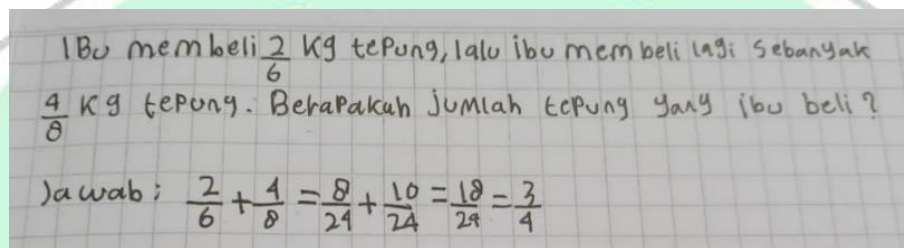 IBU membeli 2/6 Kg tepung, lalu ibu membeli lagi sebanyak
4/8 Kg tepung. Berapakah jumlah tepung yang ibu beli?
Jawab: 2/6 + 4/8 = 8/24 + 10/24 = 18/24 = 3/4